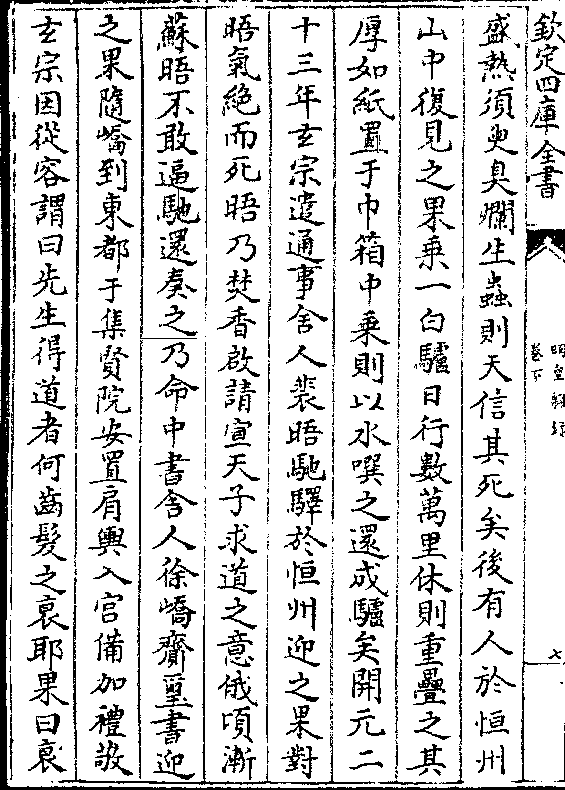 欽定四庫全書
明皇雜録
卷下
七
盛熱須臾臭爛生蟲則天信其死矣後有人於恒州
山中復見之果乗一白驢日行數萬里休則重疊之其
厚如紙置于巾箱中乗則以水噀之還成驢矣開元二
十三年玄宗遣通事舍人裴晤馳驛於恒州迎之果對
晤氣絶而死晤乃焚香啟請宣天子求道之意俄頃漸
蘇晤不敢逼馳還奏之乃命中書舍人徐嶠齎璽書迎
之果隨嶠到東都于集賢院安置肩輿入宮備加禮敬
玄宗因從容謂曰先生得道者何齒髮之衰耶果曰衰